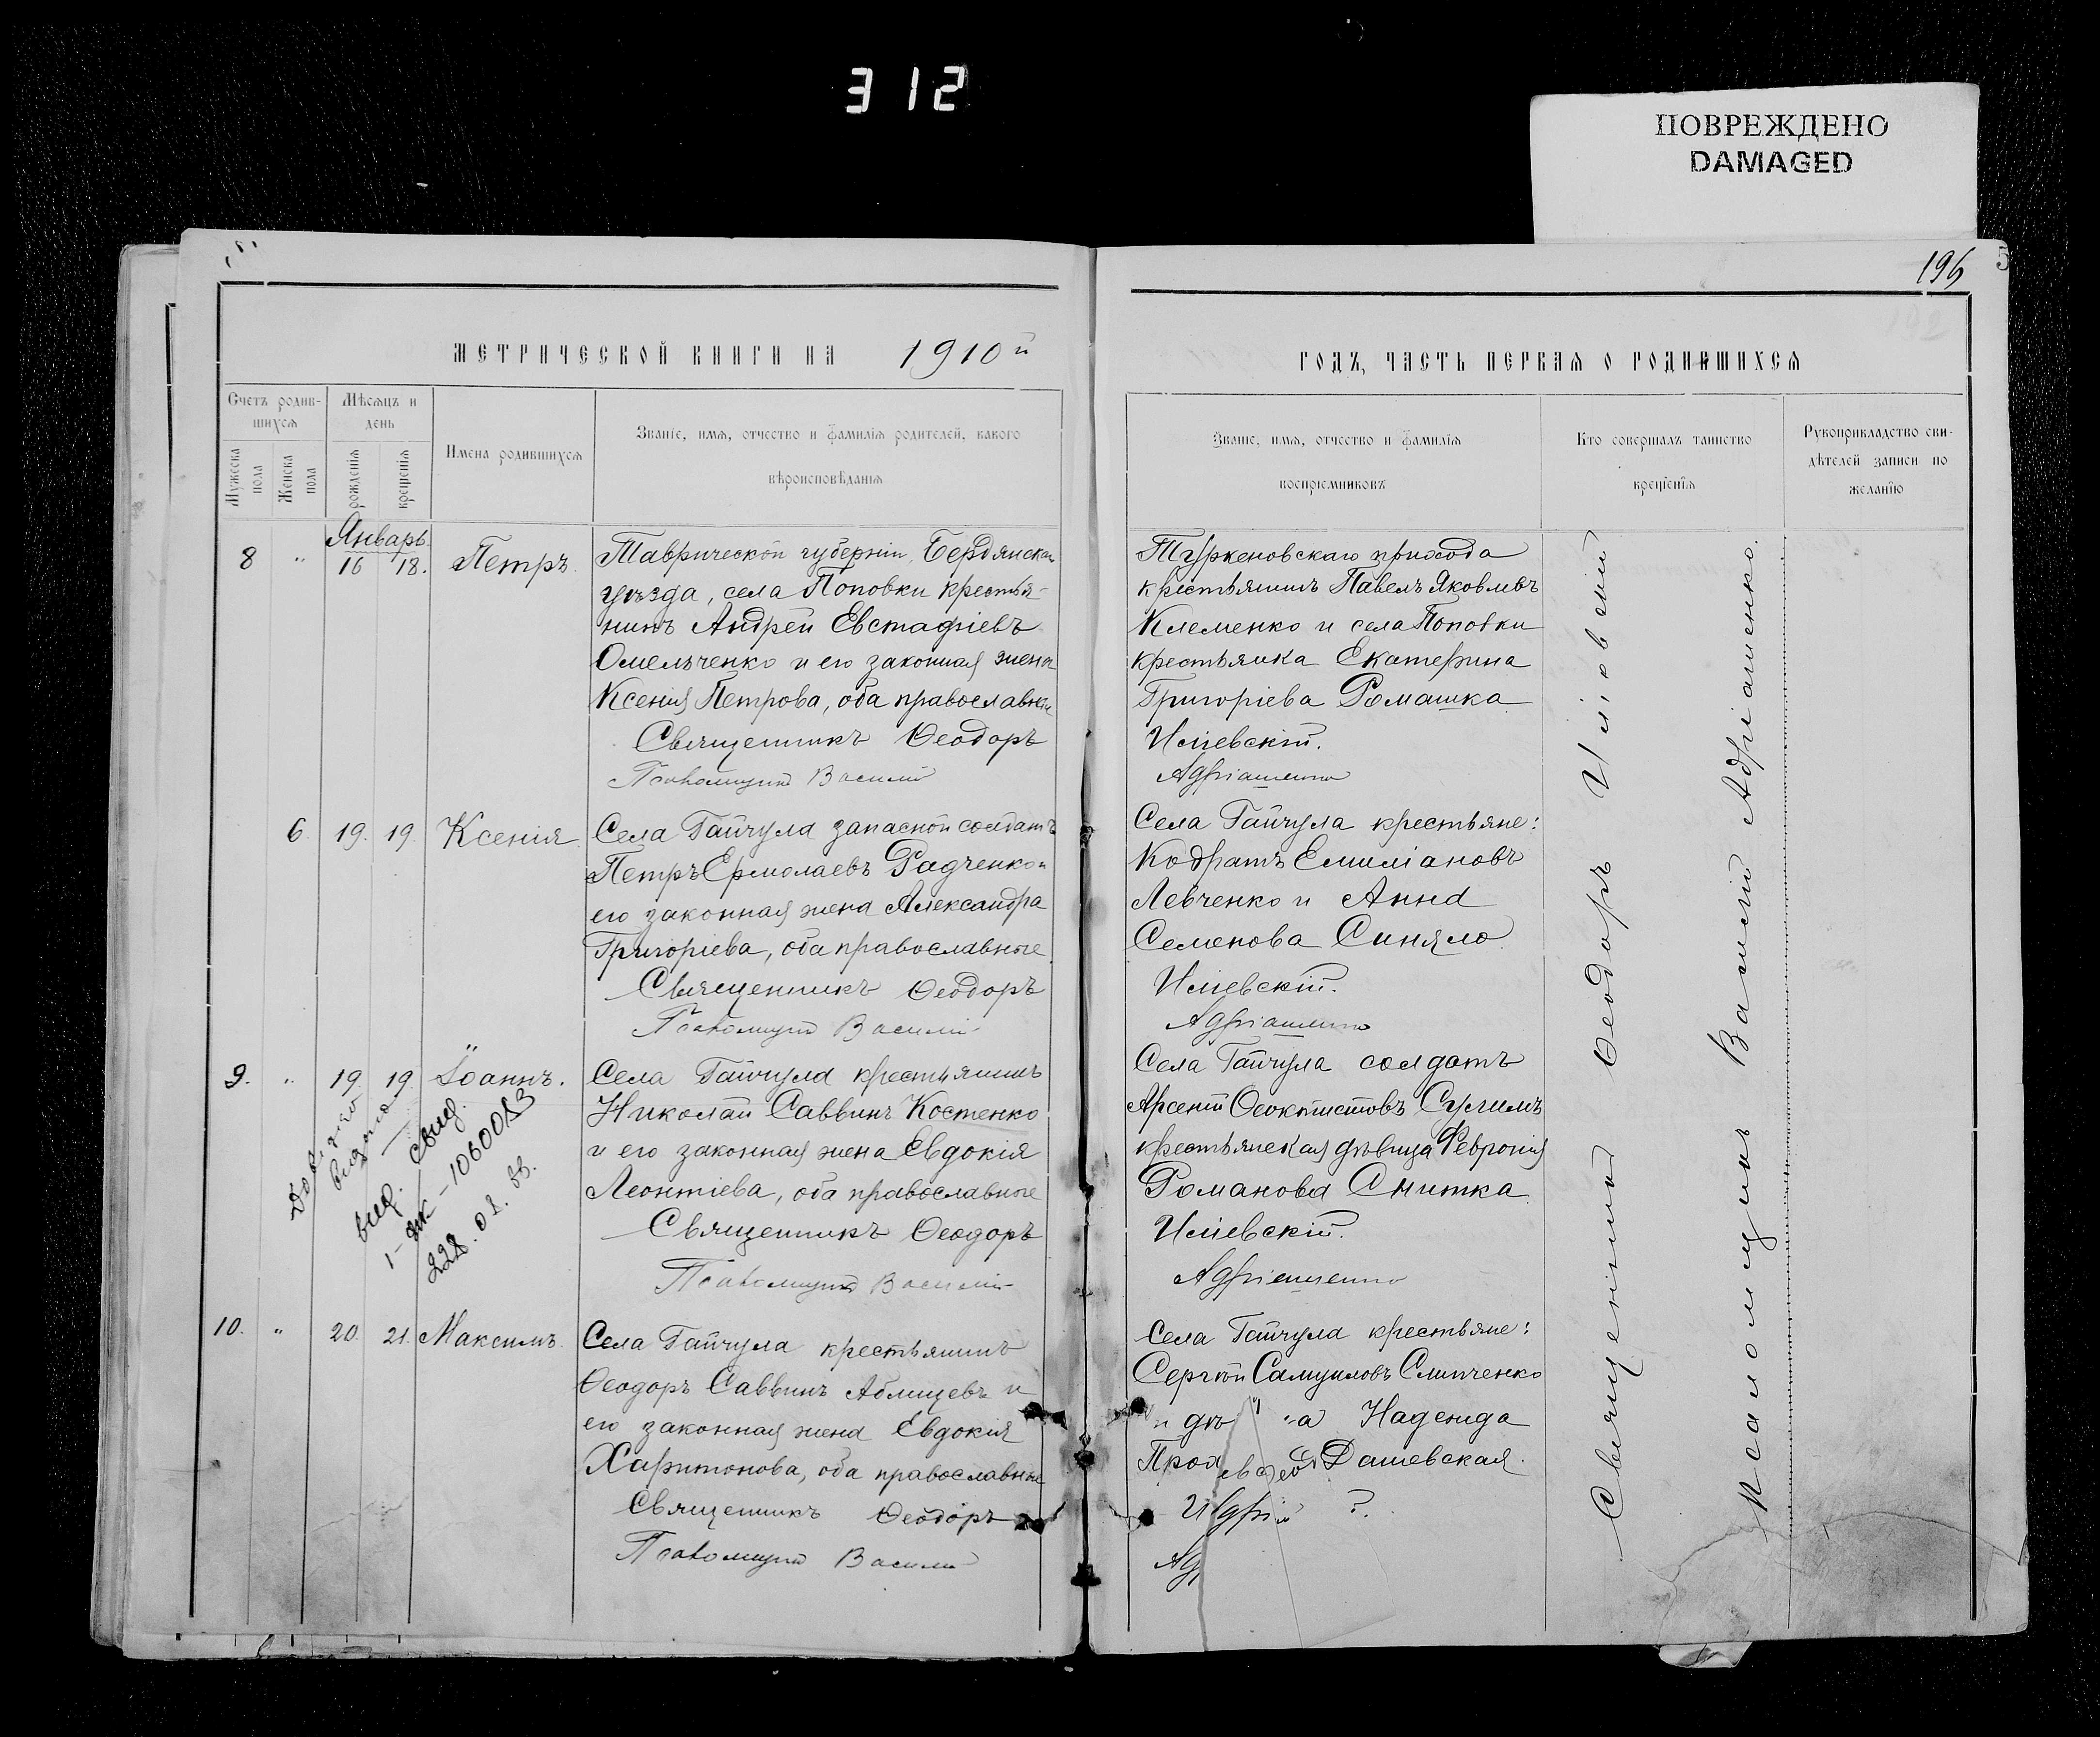 312
ПОВРЕЖДЕНО
DAMAGED
196
5
МЕТРИЧЕСКОЙ КНИГИ НА 1910й
Счетъ родив-
шихся
Мѣсяцъ и
день
Мужеска
пола
Женска
пола
рожденія
крещенія
Имена родившихся
Званіе, имя, отчество и фамилія родителей, какого
вѣроисповѣданія
Январь.
8 " 16 18. Петръ
Таврической губерніи, Бердянскаго
уѣзда, села Поповки крестья-
нинъ Андрей Евстафіевъ
Омельченко и его законная жена
Ксенія Петрова, оба православные
Священникъ Ѳеодоръ
Псаломщикъ Василій
6. 19. 19. Ксенія
Села Гайчула запасной солдатъ
Петръ Ермолаевъ Радченко и
его законная жена Александра
Григоріева, оба православные
Священникъ Ѳеодоръ
Псаломщикъ Василій
9. " 19 19. Іоаннъ.
выдано
выд. свид.
1-ЖК-1060083
Села Гайчула крестьянинъ
Николай Саввинъ Костенко
и его законная жена Евдокія
Леонтіева, оба православные
Священникъ Ѳеодоръ
Псаломщикъ Василій
10. " 20. 21. Максимъ.
Села Гайчула крестьянинъ
Ѳеодоръ Саввинъ и
его законная жена Евдокія
Харитонова, оба православные
Священникъ Ѳеодоръ
Псаломщикъ Василій
ГОДЪ, ЧАСТЬ ПЕРВАЯ О РОДИВШИХСЯ
Званіе, имя, отчество и фамилія
воспріемниковъ
Кто совершалъ таинство
крещенія
Рукоприкладство сви-
дѣтелей записи по
желанію
Туркеновскаго прихода
крестьянинъ Павелъ Яковлевъ
Клеменко и села Поповки
крестьянка Екатерина
Григоріева Ромашка
Иліевскій.
Адріаненко
Села Гайчула крестьяне:
Кодратъ Емиліановъ
Левченко и Анна
Семенова Синяло
Иліевскій.
Адріаненко
Села Гайчула солдатъ
Арсеній Ѳеоктистовъ Сулимъ
крестьянская дѣвица Февронія
Романова Снитка
Иліевскій.
Адріаненко
Села Гайчула крестьяне:
Сергѣй Самуиловъ Слипченко
и дѣ а Надежда
Дашевская.
Священникъ Ѳеодоръ Иліевскій
Псаломщикъ Василій Адріаненко.